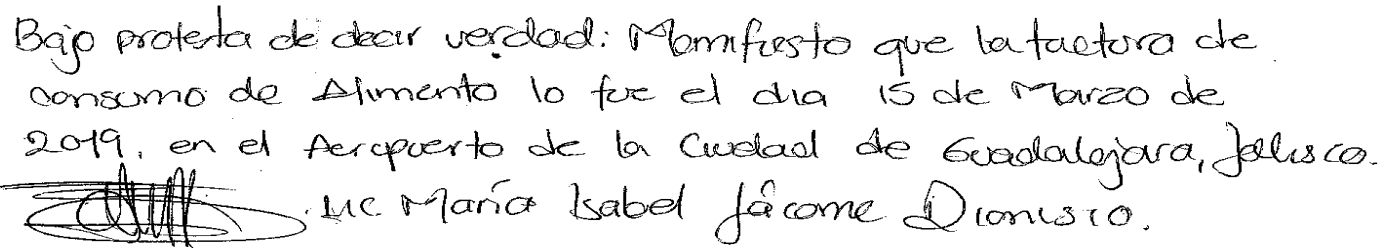 Bajo protesta de decir verdad: Manifiesto que la factura de
consumo de Alimento lo fue el dia 15 de Marzo de
2019, en el Aeropuerto de la Ciudad de Guadalajara, Jalisco.
Lic María Isabel Jácome Dionisio.